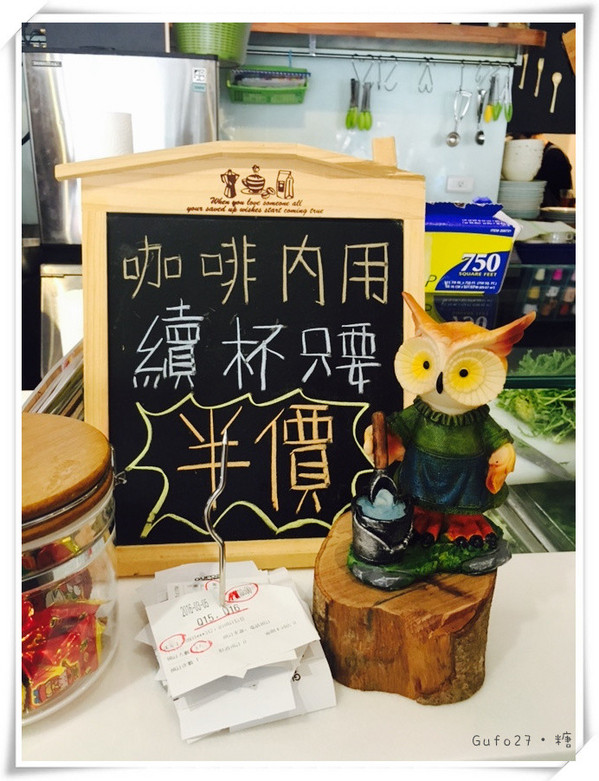 When you love someone all
your saved up wishes start coming true
咖啡內用
續杯只要
半價
750
SQUARE FEET
Q15. Q16
Gufo27·糖